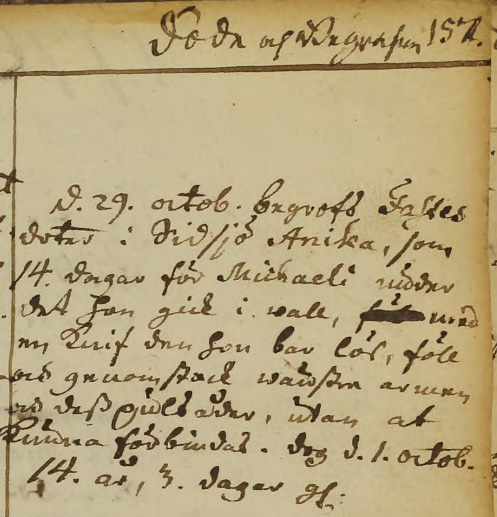 Döde och Begrafne 152.
d. 29. octob. begrofs
doter i Sidsjö Anika, som
14. dagar för Michaeli under
det hon gick i wall, med
en Knif den hon bar lös, föll
och genomstack wänstra armen
och dess puls åder, utan at
kunna förbindas. dog d. 1. octob.
14. år, 3. dagar gl: